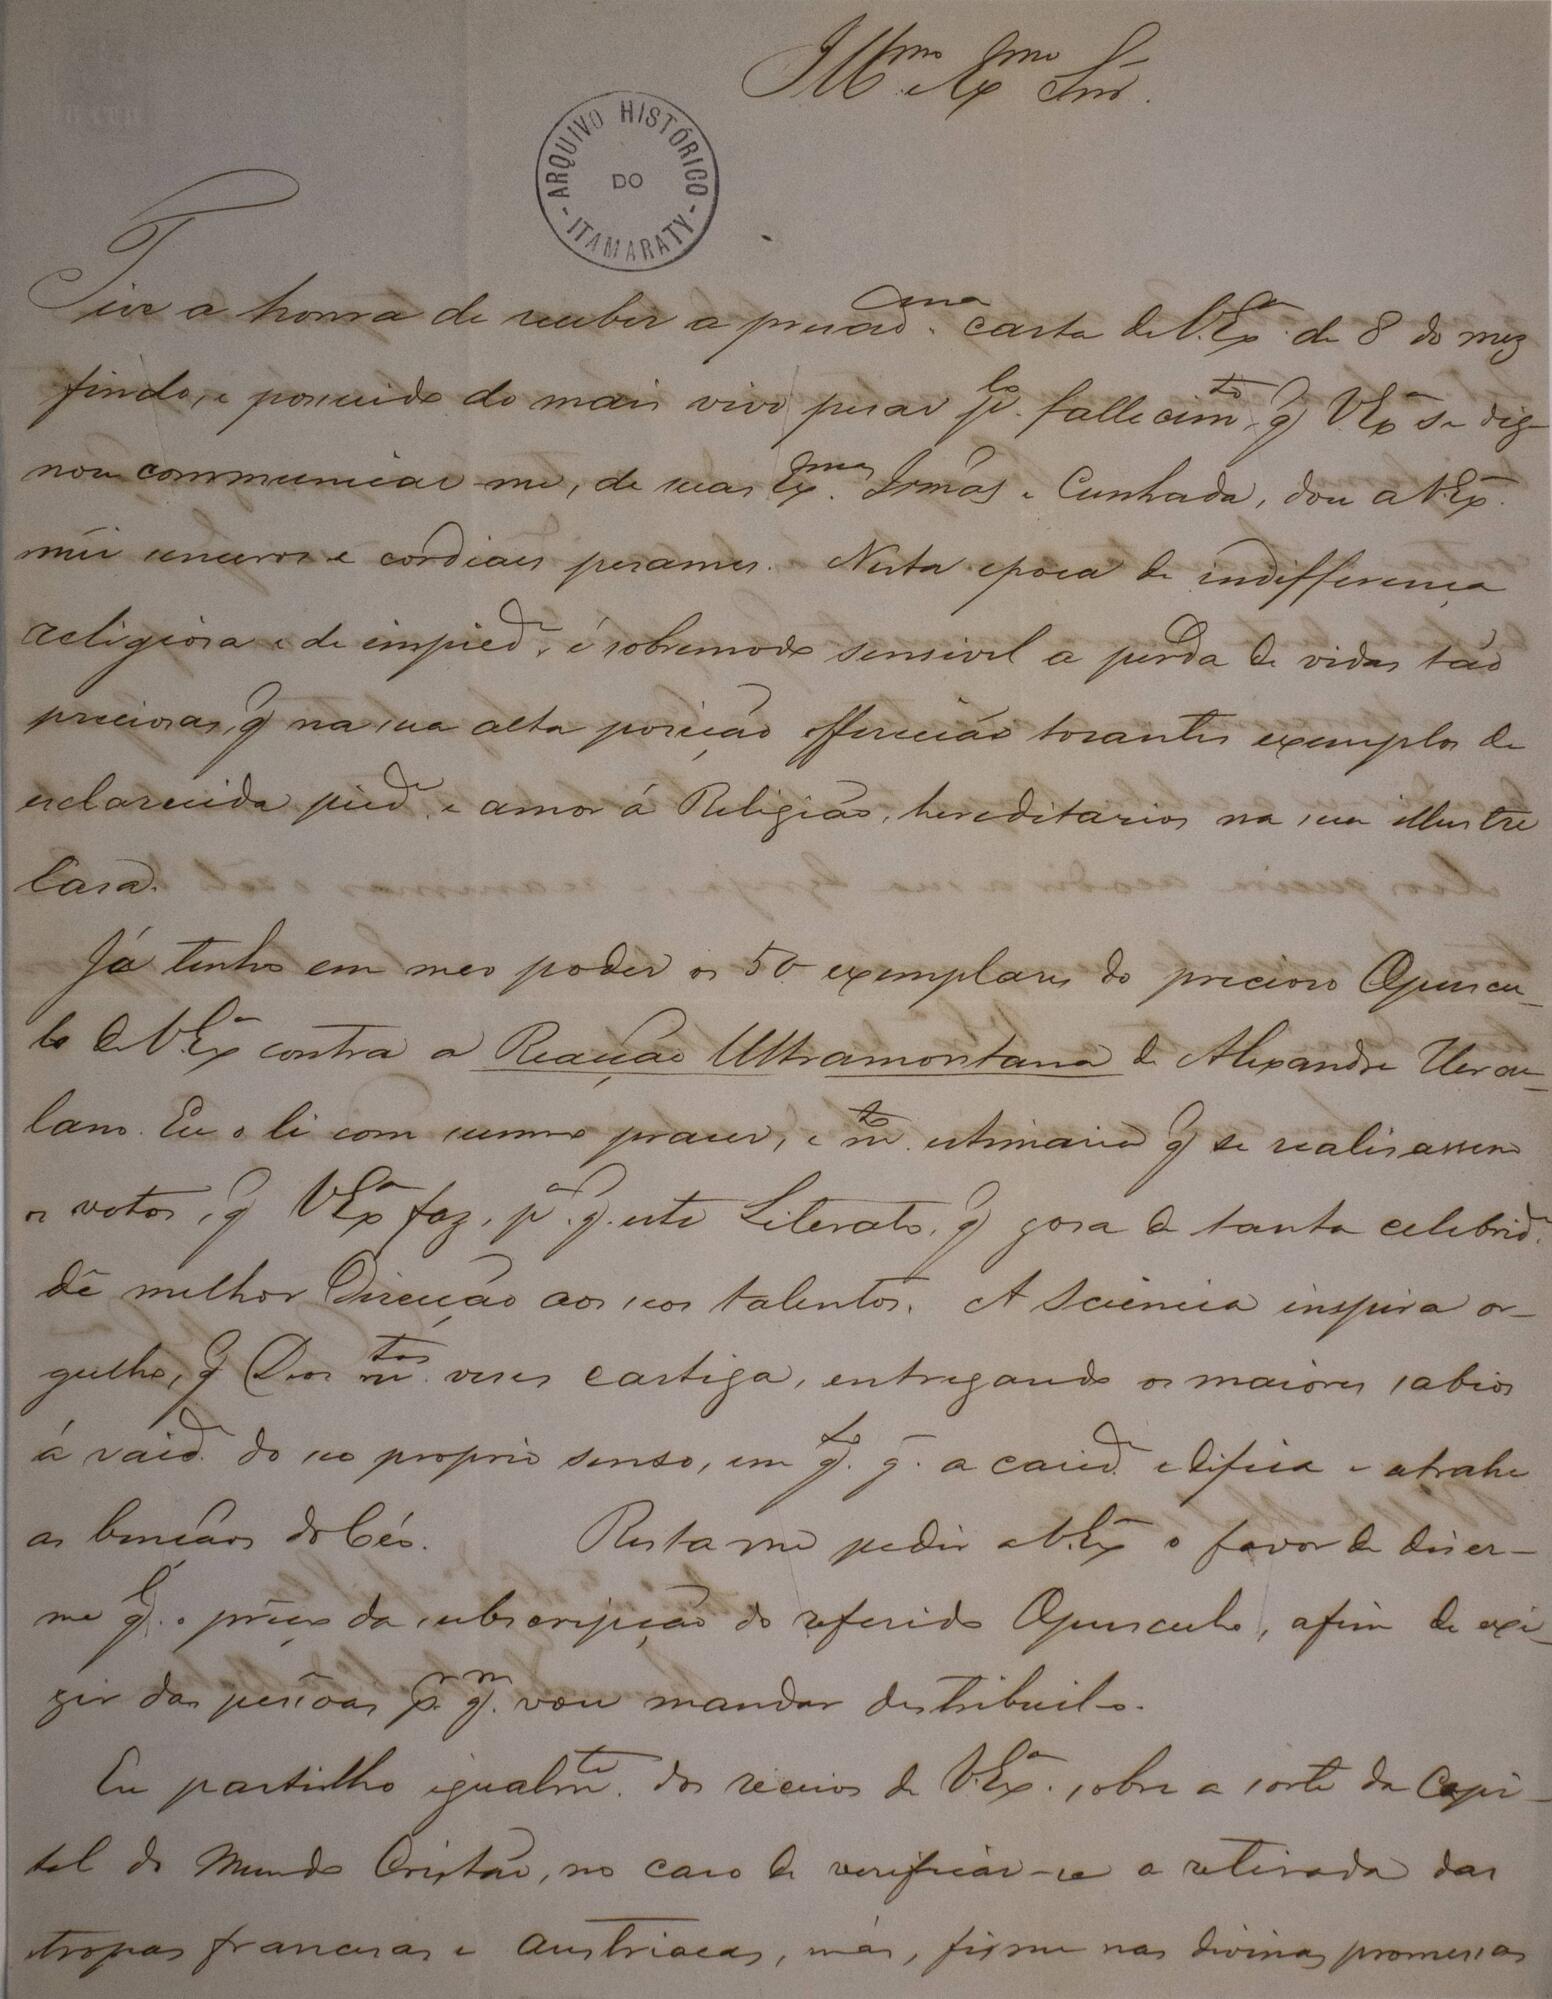 Ill.mo e Ex.mo Snr.
ARQUIVO HISTÓRICO
DO
ITAMARATY
Tive a honra de receber a presad.ma carta de V.Ex.ª de 8 do mez
findo, e possuido do mais vivo pesar p.lo fallecim.to q̃ V.Ex.ª se dig-
nou communicar me, de suas Ex.mas Irmãs e Cunhada, dou a V.Ex.ª
mũi sinceros e cordiaes pesames. Nesta epoca de indifferença
religiosa e de impied.e é sobremodo sensivel a perda de vidas tão
preciosas, q̃ na sua alta posição offerecião tocantes exemplos de
esclarecida pied.e e amor á Religião, hereditarios na sua illustre
Casa.
Já tenho em meo poder os 50 exemplares do precioso Opuscu-
lo de V.Ex.ª contra a Reacção Ultramontana de Alexandre Hercu-
lano. Eu o li com summo praser, e m.to estimaria q̃ se realisassem
os votos, q̃ V.Ex.ª faz, p.ª q̃. este Literato, q̃ gosa de tanta celebrid.e
dê melhor Direcção aos seos talentos. A Sciencia inspira or-
gulho, q̃ Deos m.tas veses castiga, entregando os maiores sabios
á vaid.e do seo proprio senso, em q.to q̃. a carid.e edifica e atrahe
as bençãos do Céo. Resta me pedir a V.Ex.ª o favor de diser-
me q.l o prêço da subscripção do referido Opusculo, afim de exi-
gir das pessôas p.r q.m vou mandar destribuil-o.
Eu partilho igualm.te dos receios de V.Ex.ª sobre a sorte da Capi-
tal do Mundo Cristão, no caso de verificar-se a retirada das
tropas francesas e austriacas, más, firme nas divinas promessas